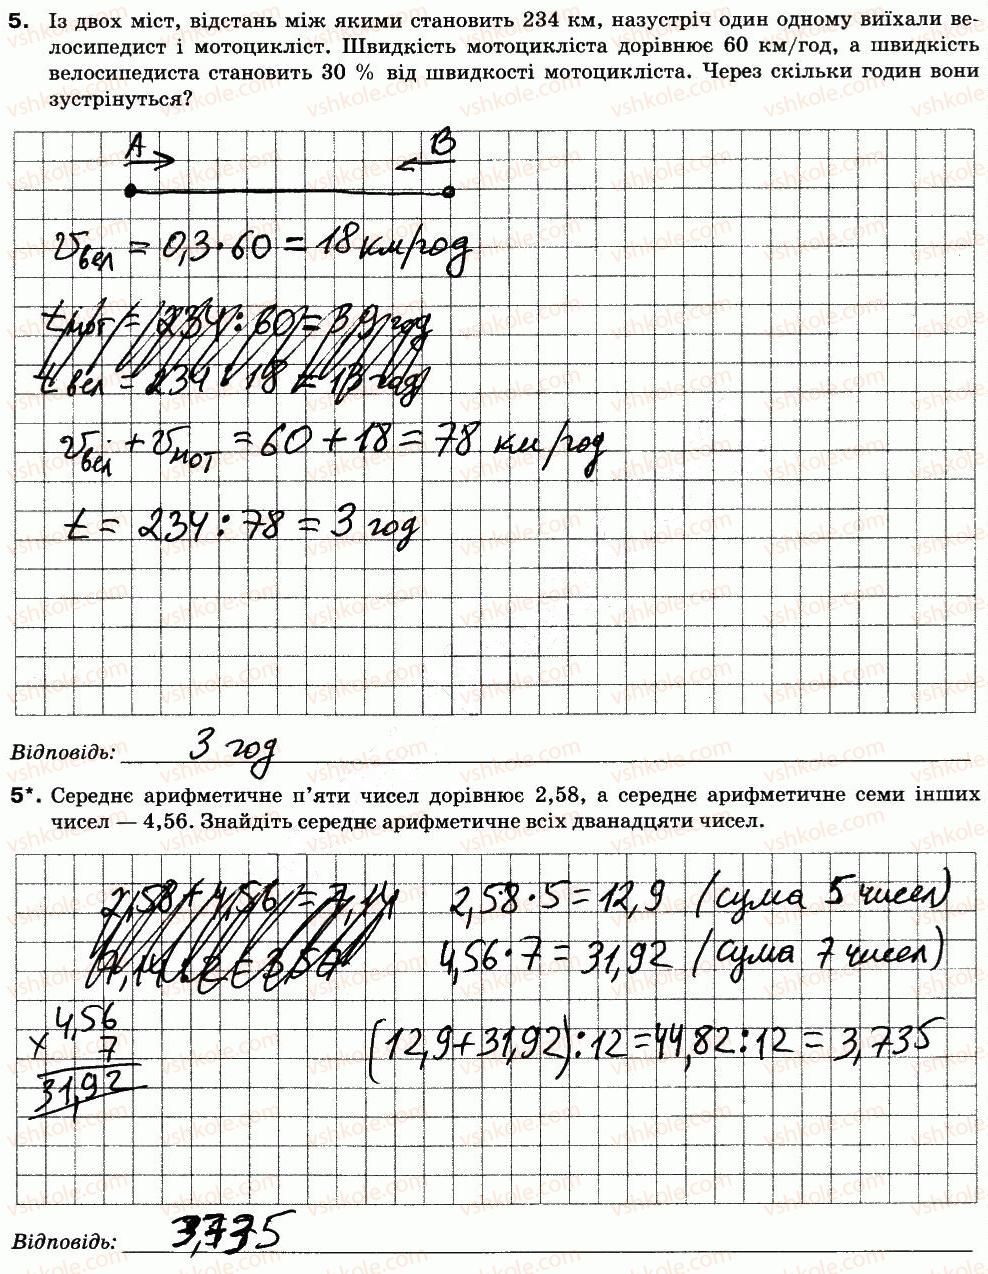 5. Із двох міст, відстань між якими становить 234 км, назустріч один одному виїхали ве-
лосипедист і мотоцикліст. Швидкість мотоцикліста дорівнює 60 км/год, а швидкість
велосипедиста становить 30 % від швидкості мотоцикліста. Через скільки годин вони
зустрінуться?
A B
v вел = 0,3 · 60 = 18 км/год
t мот = 234 : 60 = 3,9 год
t вел = 234 : 18 = 13 год
v вел + v мот = 60 + 18 = 78 км/год
t = 234 : 78 = 3 год
Відповідь: 3 год
5*. Середнє арифметичне п’яти чисел дорівнює 2,58, а середнє арифметичне семи інших
чисел — 4,56. Знайдіть середнє арифметичне всіх дванадцяти чисел.
2,58 + 4,56 = 7,14
7,14 : 2 = 3,57
2,58 · 5 = 12,9 (сума 5 чисел)
4,56 · 7 = 31,92 (сума 7 чисел)
4,56
× 7
31,92
(12,9 + 31,92) : 12 = 44,82 : 12 = 3,735
Відповідь: 3,735
vshkole.com